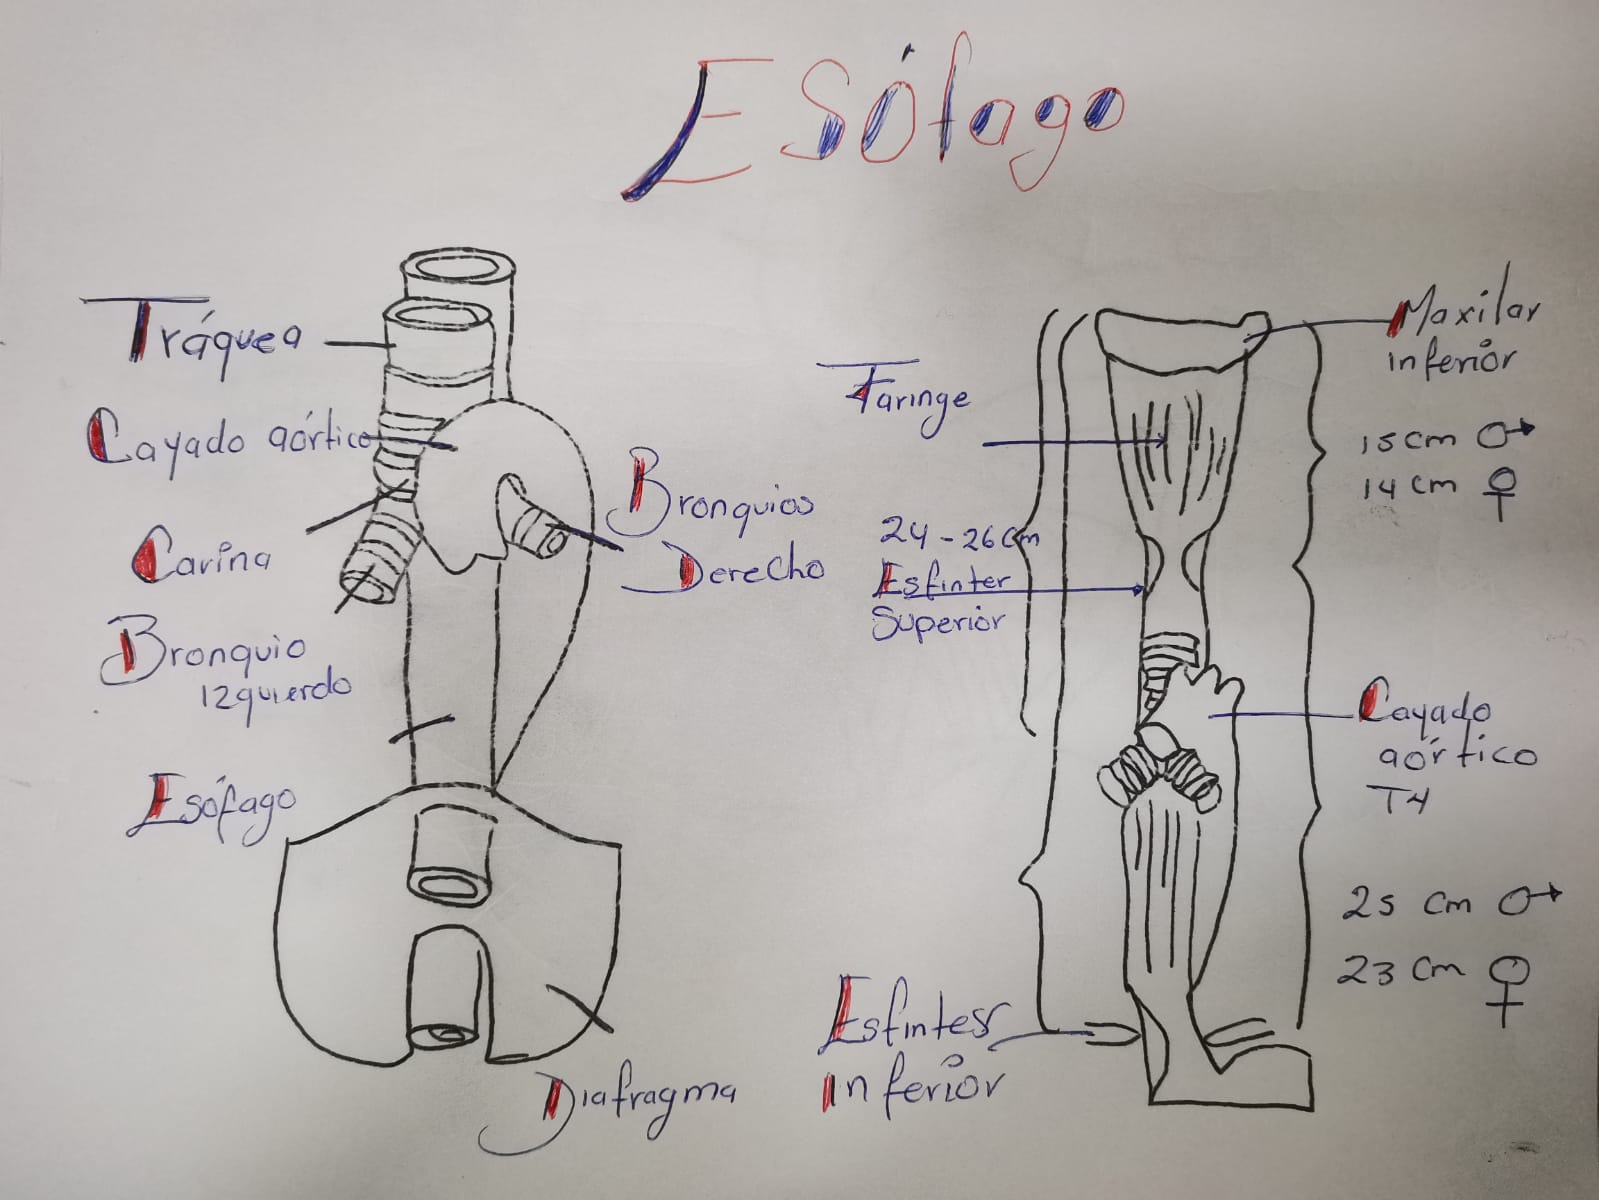 Esófago
Tráquea
Cayado aórtico
Carina
Bronquio
izquierdo
Esófago
Bronquios
Derecho
Diafragma
Faringe
24-26cm
Esfinter
Superior
Esfinter
inferior
Maxilar
inferior
15cm ♂
14cm ♀
Cayado
aórtico
T4
25 cm ♂
23 cm ♀